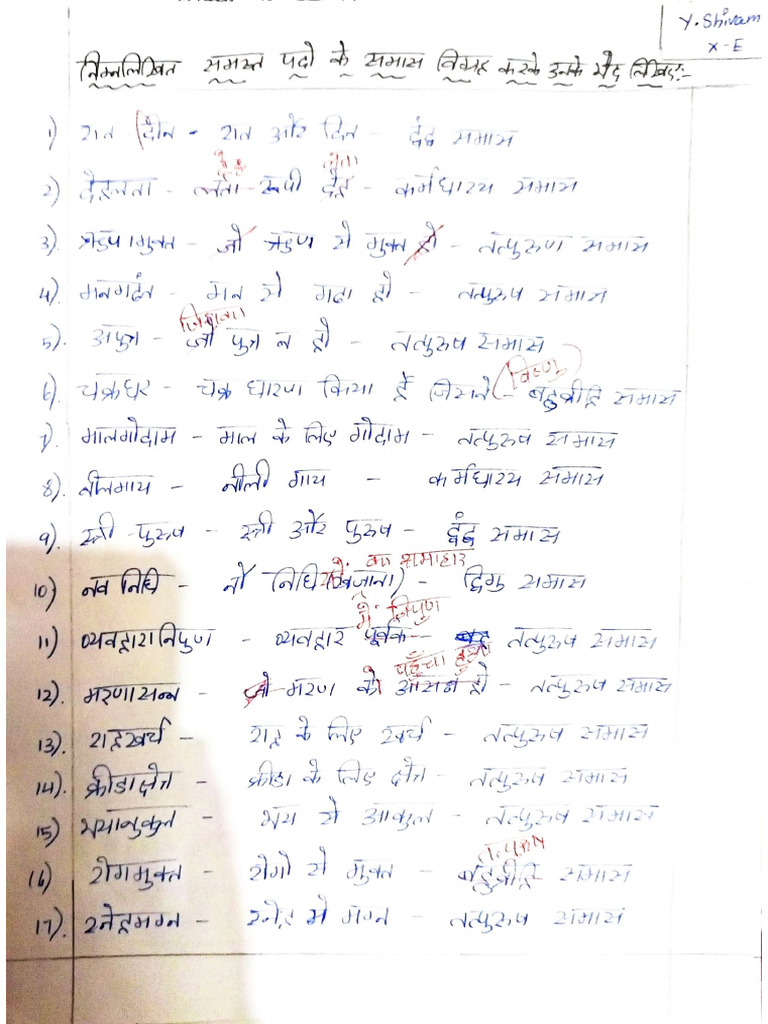 Y. Shivam
X-E
निम्नलिखित समस्त पदो के समास विग्रह करके उनके भेद लिखिए:-
1) रात-दीन - रात और दिन - द्वंद्व समास
देह लता
2) देहलता - लता रूपी देह - कर्मधारय समास
3) ऋणमुक्त - जो ऋण से मुक्त हो - तत्पुरुष समास
4) मनगढंत - मन से गढा हो - तत्पुरुष समास
5). अपुत्र - जो पुत्र न हो - तत्पुरुष समास
(विष्णु)
6) चक्रधर - चक्र धारण किया है जिसने - बहुव्रीहि समास
7) मालगोदाम - माल के लिए गोदाम - तत्पुरुष समास
8). नीलगाय - नीली गाय - कर्मधारय समास
9) स्त्री-पुरुष - स्त्री और पुरुष - द्वंद्व समास
का समाहार
10) नव निधि - नौ निधि (खजाना) - द्विगु समास
में निपुण
11) व्यवहारनिपुण - व्यवहार पूर्वक - तत्पुरुष समास
पहुँचा हुआ
12) मरणासन्न - जो मरण को आसन हो - तत्पुरुष समास
13) राहखर्च - राह के लिए खर्च - तत्पुरुष समास
14). क्रीडाक्षेत्र - क्रीडा के लिए क्षेत्र - तत्पुरुष समास
15) भयाकुल - भय से आकुल - तत्पुरुष समास
तत्पुरुष
16) रोगमुक्त - रोगो से मुक्त - बहुव्रीहि समास
17). स्नेहमग्न - स्नेह मे मग्न - तत्पुरुष समास